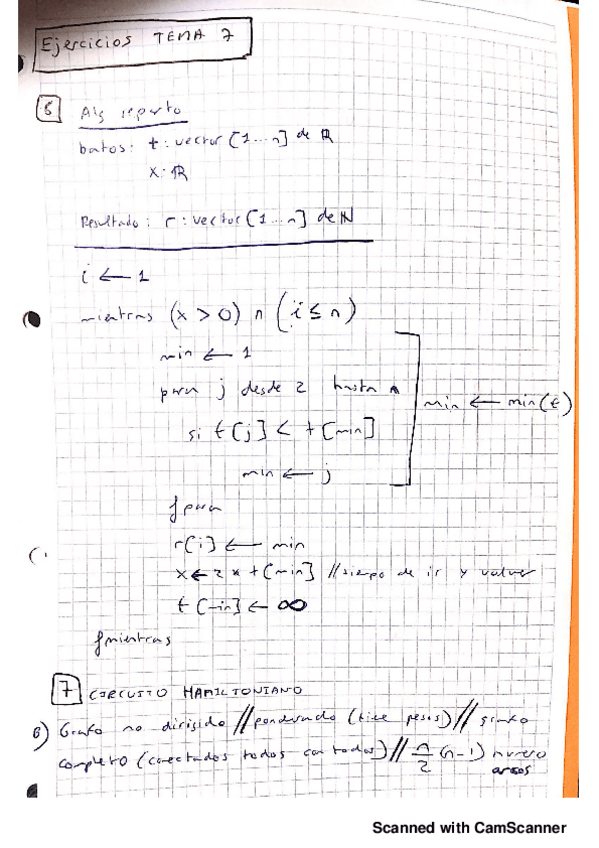 Ejercicios TEMA 7
6 Alg reparto
Datos: t : vector [1...n] de R
x: R
Resultado: r : vector [1...n] de N
i ← 1
mientras (x > 0) ∩ (i ≤ n)
min ← 1
para j desde 2 hasta n
min ← min(t)
si t[j] < t[min]
min ← j
fpara
r[i] ← min
x ← 2 * t[min] // tiempo de ir y volver
t[min] ← ∞
fmientras
7 CIRCUITO HAMILTONIANO
6) Grafo no dirigido // ponderado (tiene pesos) // grafo
completo (conectados todos con todos) // n/2 (n-1) número
arcos
Scanned with CamScanner